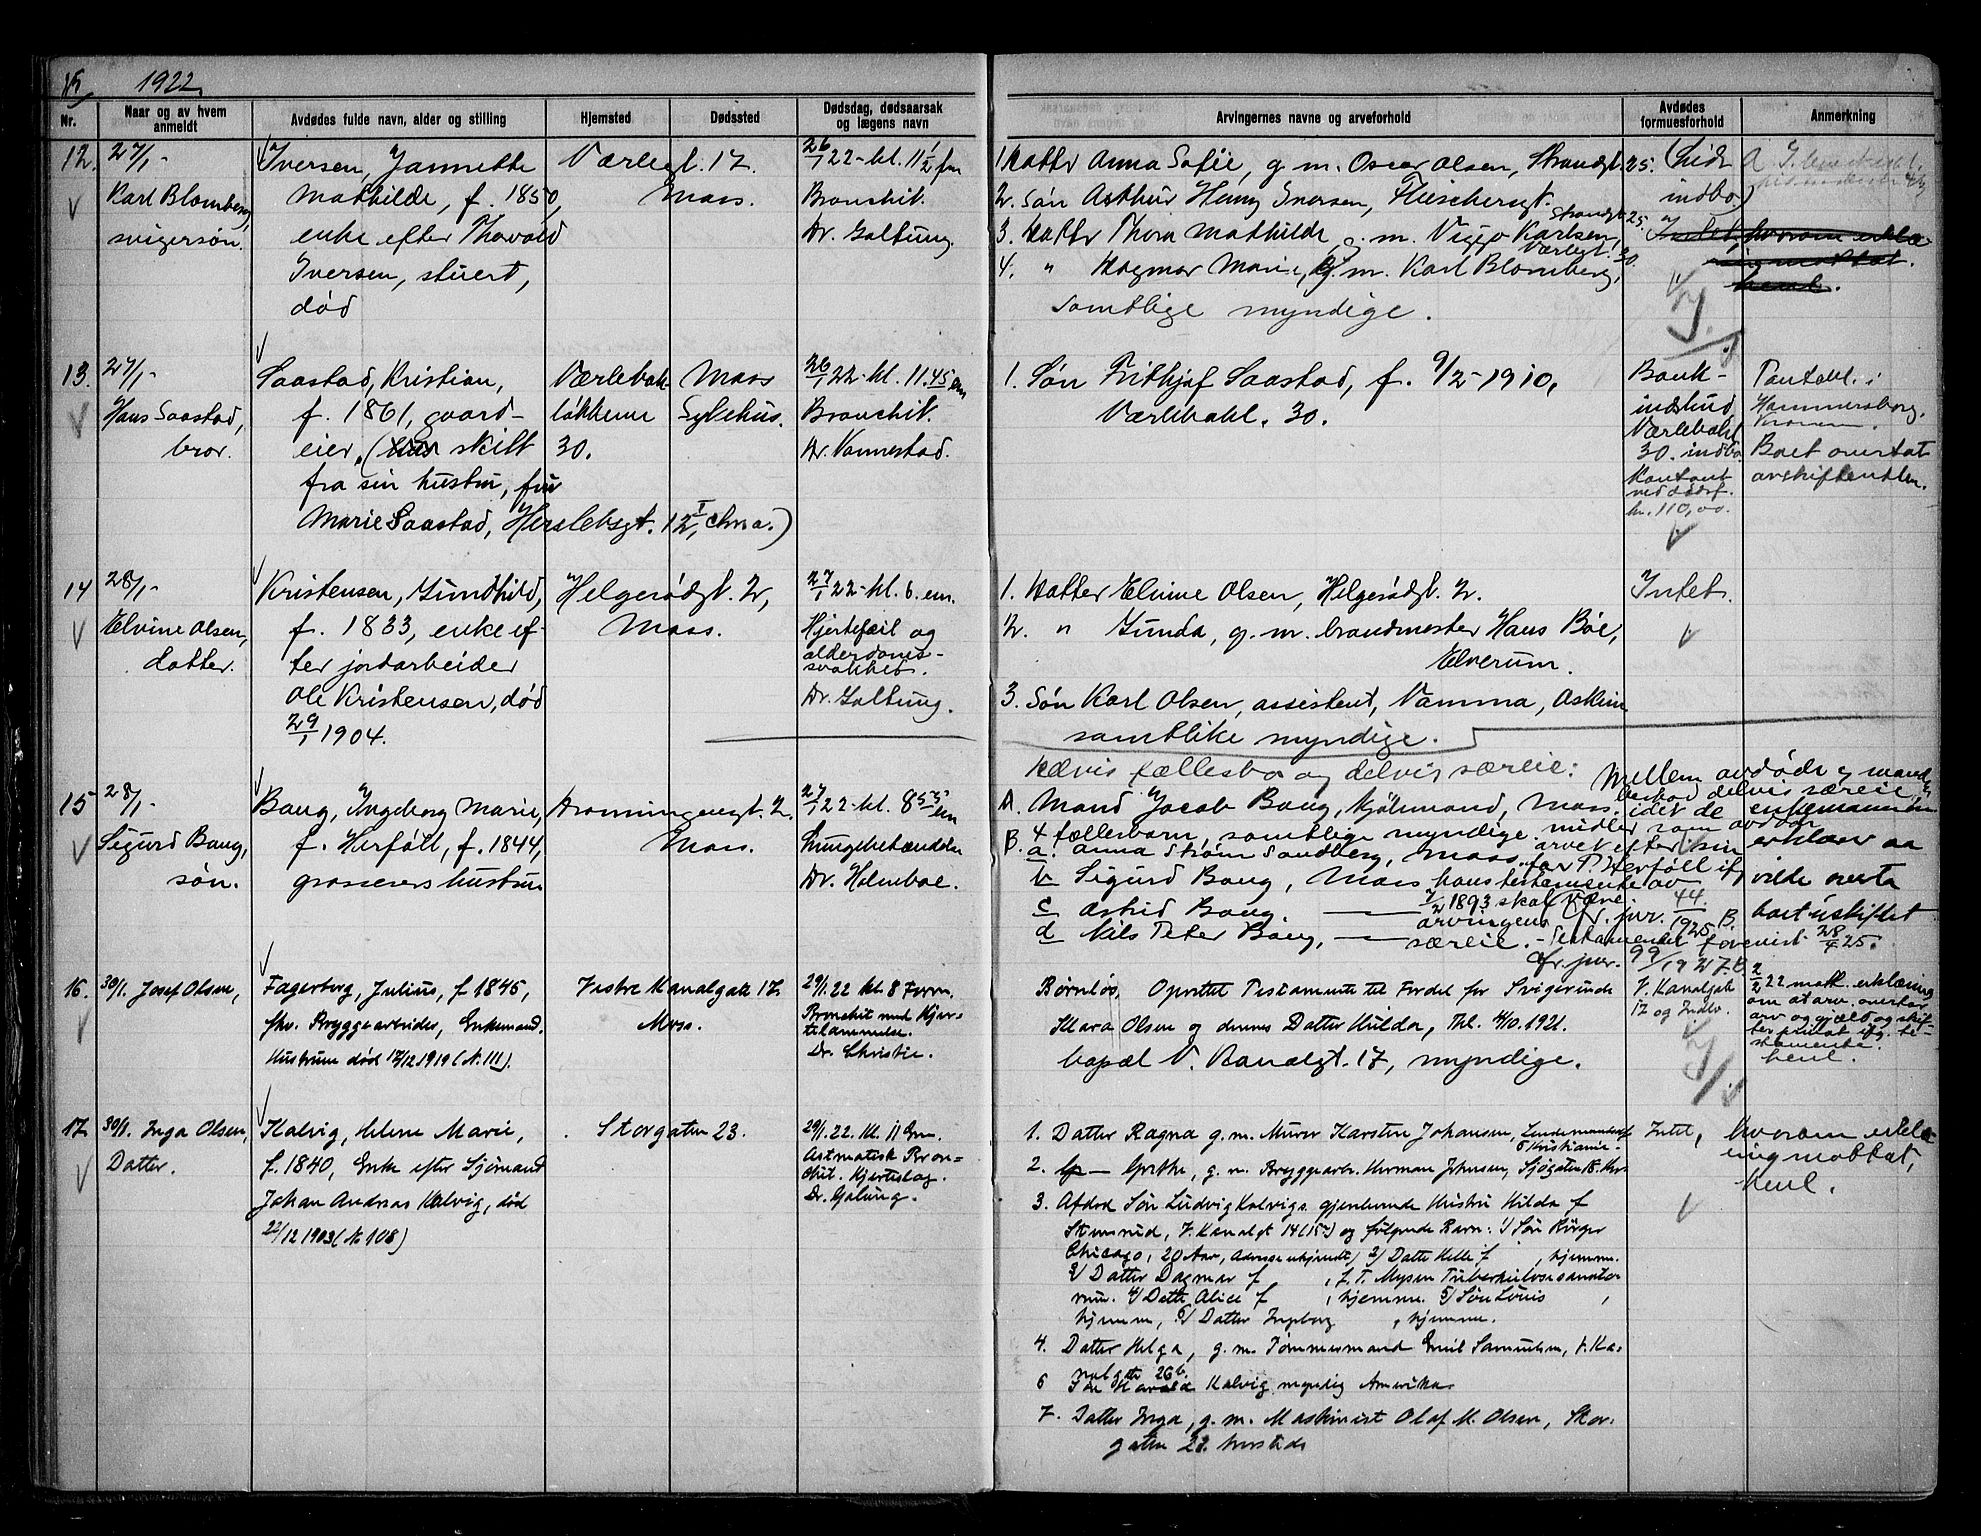 1922.
Nr.
Naar og av hvem anmeldt
Avdødes fulde navn, alder og stilling
Hjemsted
Dødssted
Dødsdag, dødsaarsak og lægens navn
Arvingernes navne og arveforhold
Avdødes formuesforhold
Anmerkning
12. 27/1-
Karl Blomberg,
svigersøn.
Iversen, Jannette
Mathilde, f. 1850,
enke efter Thovald
Iversen, stuert,
død
Værlegt. 17.
Moss.
26/1 22- kl. 11 1/2 fm
Bronchit.
Dr. Galtung.
1. Datter Anna Sofie, g. m. Oscar Olsen, Strandgt. 25.
2. Søn Arthur Henry Iversen, Fleischersgt.
3. Datter Thora Mathilde, g. m. Viggo Karlsen, Strandgt 25.
4. " Dagmar Marie, g. m. Karl Blomberg, Værlegt. 30.
Samtlige myndige.
(Lidt
indbo)
Intet, hvorom erklæ-
ring mottat.
henl.
13. 27/1-
Hans Saastad,
bror.
Saastad, Kristian,
f. 1861, gaard-
eier. (skilt
fra sin hustru, fru
Marie Saastad, Herslebsgt. 12, I Chra.)
Værlebak
løkkene
30.
Moss
Sykehus.
26/1 22- kl. 11.45 em
Bronchit.
Dr. Vannestad.
1. Søn Frithjof Saastad, f. 9/2-1910,
Værlebakl. 30.
Bank-
indskud
Værlebakl
30. indbo
Kontant
ved dødsf.
kr. 110,00.
Pantobl. i
Hammersborg.
Boet overtat
av skifteretten.
14 28/1-
Elvine Olsen,
datter.
Kristensen, Gundhild,
f. 1833, enke ef-
ter jordarbeider
Ole Kristensen, død
29/1 1904.
Helgerødgt. 2,
Moss.
27/1 22- kl. 6. em.
Hjertefeil og
alderdoms-
svakhet.
Dr. Galtung.
1. Datter Elvine Olsen, Helgerødgt. 2.
2. " Gunda, g. m. brandmester Hans Bøe,
Elverum.
3. Søn Karl Olsen, assistent, Vamma, Askim
samtlike myndige.
Intet.
15 28/1-
Sigurd Bang,
søn.
Bang, Ingeborg Marie,
f. Herføll, f. 1844,
grosserers hustru
Dronningensgt. 2.
Moss.
27/1 22- kl. 8 55 em
Lungebetændelse
Dr. Holmboe.
Delvis fællesbo og delvis særeie:
A. Mand Jacob Bang, Kjøbmand, Moss.
B. 4 fællesbarn, samtlige myndige.
a. Anna Strøm Sandberg, Moss.
b Sigurd Bang, Moss
c Astrid Bang.
d Nils Peter Bang,
Mellem avdøde og mand
bestod delvis særeie,
idet de
midler som avdøde
arvet efter sin
far P. Herføll ifg
hans testamente av
7/2 1893 skal være
arvingens
særeie. - Testamentet forevist 28/4 25.
cfr. jur. 44/1925 B.
cfr. jur. 99/1927. B.
enkemannen
erklærer aa
ville overta
boet uskiftet
16. 30/1. Josef Olsen,
Fagerberg, Julius, f. 1845,
fhv. Bryggearbeider, Enkemand.
Hustruen død 17/12 1919 (N. 111).
Vestre Kanalgate 17.
Moss.
29/1. 22 kl. 8 Form.
Bronchit med Hjer-
telammelse.
Dr. Christie.
Barnløs, Oprettet Testamente til Fordel for Svigerinde
Klara Olsen og dennes Datter Hulda, Thl. 4/10. 1921.
bopæl V. Kanalgt. 17, myndige.
V. Kanalgate
17 og Indbo.
2/2 22 mott. erklæring
om at arv. overtar
arv og gjæld og skif-
ter privat ifg. te-
stamente.
henl.
17 30/1. Inga Olsen,
Datter.
Kalvig, Helene Marie,
f. 1840, Enke efter Sjømand
Johan Andreas Kalvig, død
22/12 1903 (N. 108)
Storgaten 23.
29/1. 22. kl. 11 Em.
Astmatisk Bron-
chit. Hjerteslag.
Dr. Galtung.
1. Datter Ragna g. m. Murer Karsten Johansen, Kristiania.
2. — Grethe, g. m. Bryggearb. Herman Johnsen, Sjøgaten 18. her
3. Afdød Søn Ludvig Kalvigs gjenlevende Hustru Hilda f
Stensrud, V. Kanalgt 14 (15?) og følgende Barn: 1/ Søn Birger
Chicago, 20 Aar, 2/ Datter Helle f , hjemme.
3/ Datter Dagmar f , p. t. Mysen Tuberkulosesanato-
rium. 4/ Datter Alice f , hjemme. 5/ Søn Louis ,
hjemme, 6/ Datter Ingeborg , hjemme.
4. Datter Helga, g. m. Tømmermand Emil Samuelsen, V. Ka-
nalgate 26b.
6 Søn Harald Kalvig myndig Amerika
7. Datter Inga, g. m. Maskinist Olaf M. Olsen, Stor-
gaten 23. hersteds
Intet,
hvorom erklæ-
ring mottat,
Henl.